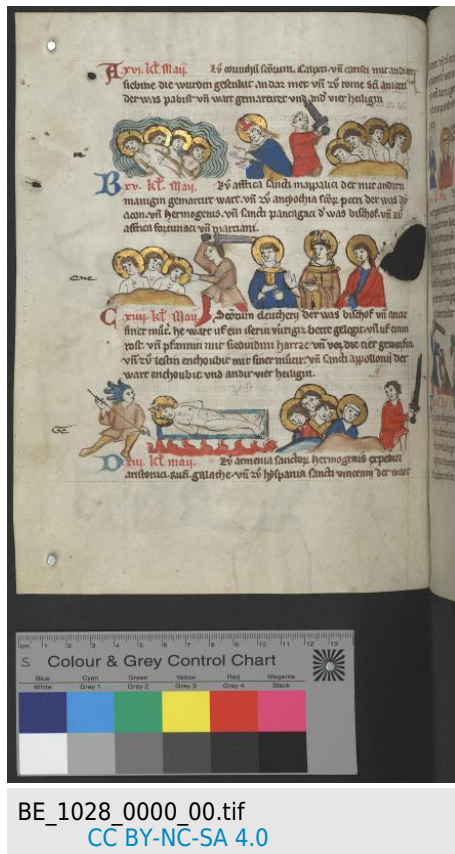 A xvi. kl. Maij. Zů corinthű scőrum. Calixti. vñ carisii mit andirn
siebine die wurdin gesenkit an daz mer. vñ zů rome sči aniceti
der was pabist vñ wart gemarteret vnd and' vier heiligin
B xv. kl. Maij. Zů affrica sancti mappalici der mit andirn
manigin gemarteret wart. vñ zů anthochia scőr petri der was dy
acon. vñ hermogenis. vñ sancti pantagati d' was bischof. vñ zů
affrica fortunati vñ marciani.
C xiiii. kl. Maij. Sctorum eleutherij der was bischof vñ ancie
siner můt'. he wart uf ein iserin
rost. vñ pfannin mit siedindim hartze vñ vor die tier geworfin.
vñ zů lestin enthoubit mit siner můtir. vñ sancti appollonij der
wart enthoubit vnd andir vier heiligin.
D xiii. kl. maij. Zů armenia sanctor hermogenis expediti
aristonici. rufi. galathe. vñ zů hyspania sancti vincentij der wart
cm 1 2 3 4 5 6 7 8 9 10 11 12 13
Colour & Grey Control Chart
Blue Cyan Green Yellow Red Magenta
White Grey 1 Grey 2 Grey 3 Grey 4 Black
BE_1028_0000_00.tif
CC BY-NC-SA 4.0